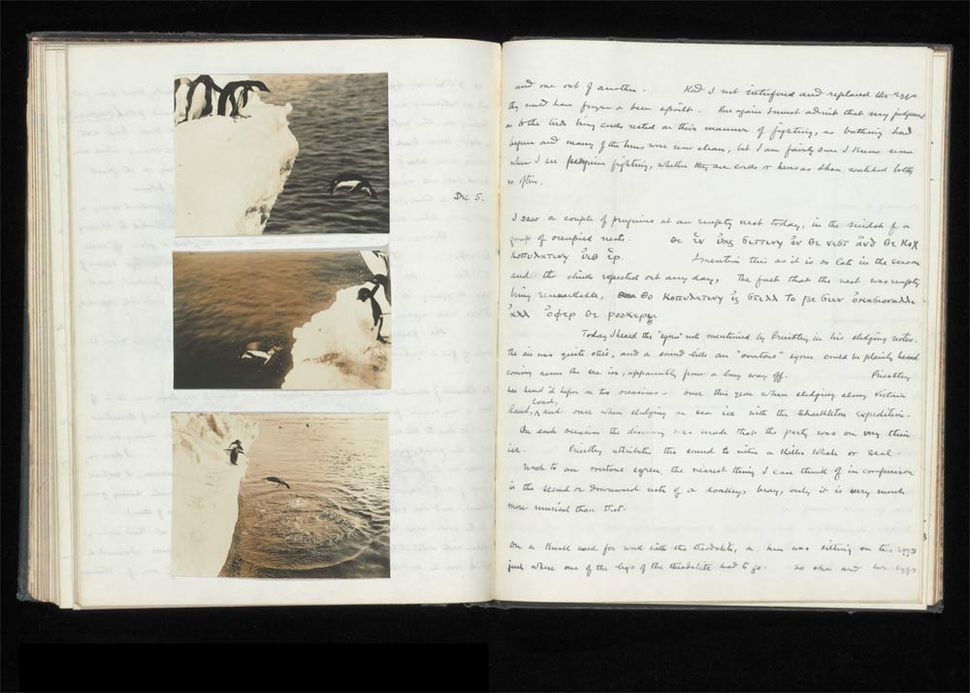 and one out of another. Had I not interfered and replaced the eggs
they would have frozen or been spoilt. Here again I must admit that my judgement
as to the birds being cocks rested on their manner of fighting, as bathing had
begun and many of the hens were now clean, but I am fairly sure I know now
when I see penguins fighting, whether they are cocks or hens as I have watched both
so often.
Dec 5.
I saw a couple of penguins at an empty nest today, in the midst of a
group of occupied nests.
I mention this as it is so late in the season
and the chicks expected out any day, The fact that the nest was empty
being remarkable,
Today I heard the "syren" note mentioned by Priestley in his sledging notes.
The air was quite still, and a sound like an "overtone" syren could be plainly heard
coming across the sea ice, apparently from a long way off. Priestley
has heard it before on two occasions – once this year when sledging along Victoria
land, coast, and once when sledging on sea ice with the Shackleton expedition.
On each occasion the discovery was made that the party was on very thin
ice. Priestley attributes the sound to either a Killer Whale or seal.
Next to an overtone syren, the nearest thing I can think of in comparison
is the second or downward note of a donkeys bray, only it is very much
more musical than that.
On a knoll used for work with the theodolite, a hen was sitting on two eggs
just where one of the legs of the theodolite had to go. So she and her eggs